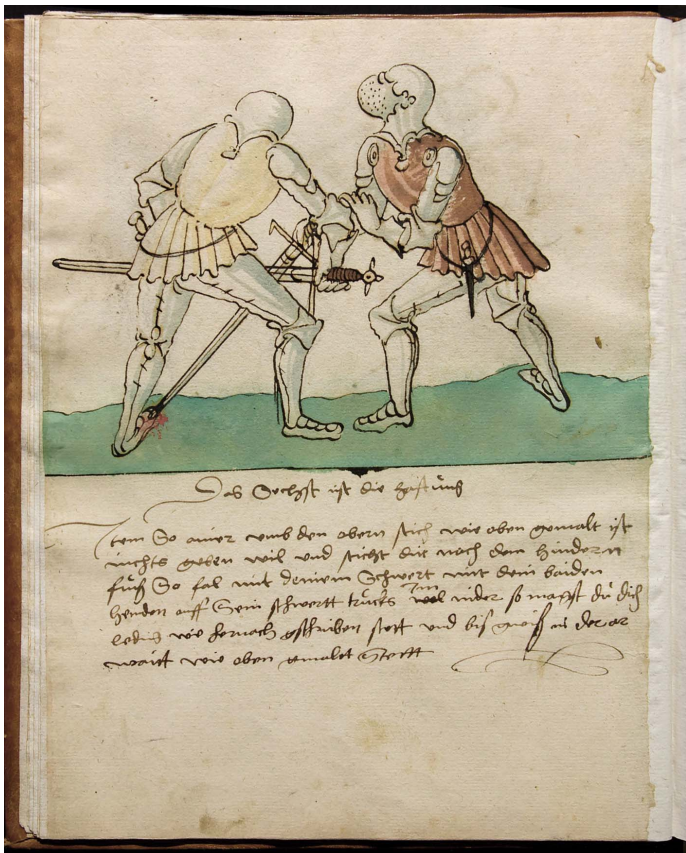 Das Sechst ist die hafftung
Item So ainer umb den obern stich wie oben gemalt ist
nichts geben wil und sticht dir nach dem hindern
fuß So fal mit deinem Schwert mit dein baiden
henden auff Sein schwertt trucks Im wol nider so magst du dich
ledig wie hernach gschriben stett und bis in der ar
wie oben gemalet Stett